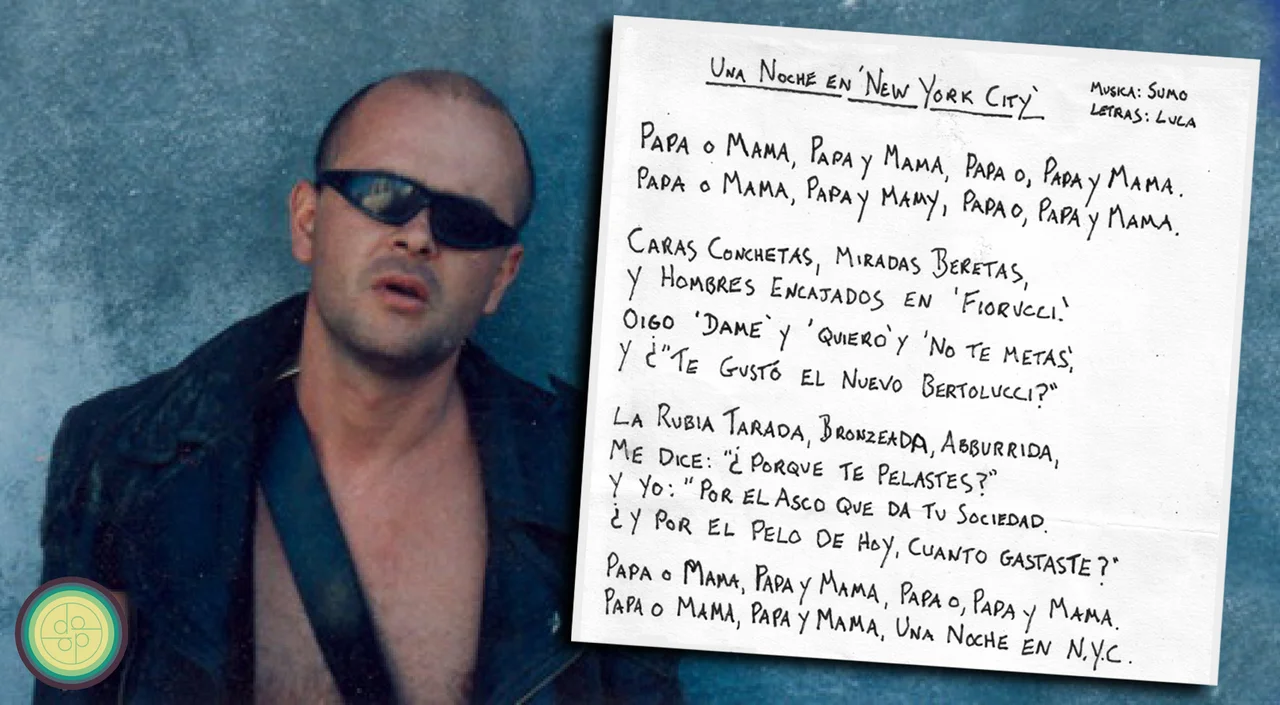 UNA NOCHE EN 'NEW YORK CITY'
MUSICA: SUMO
LETRAS: LUCA
PAPA O MAMA, PAPA Y MAMA, PAPA O, PAPA Y MAMA.
PAPA O MAMA, PAPA Y MAMY, PAPA O, PAPA Y MAMA.
CARAS CONCHETAS, MIRADAS BERETAS,
Y HOMBRES ENCAJADOS EN 'FIORUCCI.'
OIGO 'DAME' Y 'QUIERO' Y 'NO TE METAS',
Y ¿"TE GUSTÓ EL NUEVO BERTOLUCCI?"
LA RUBIA TARADA, BRONZEADA, ABBURRIDA,
ME DICE: "¿PORQUE TE PELASTES?"
Y YO: "POR EL ASCO QUE DA TU SOCIEDAD.
¿Y POR EL PELO DE HOY, CUANTO GASTASTE?"
PAPA O MAMA, PAPA Y MAMA, PAPA O, PAPA Y MAMA.
PAPA O MAMA, PAPA Y MAMA, UNA NOCHE EN N.Y.C.
do
op